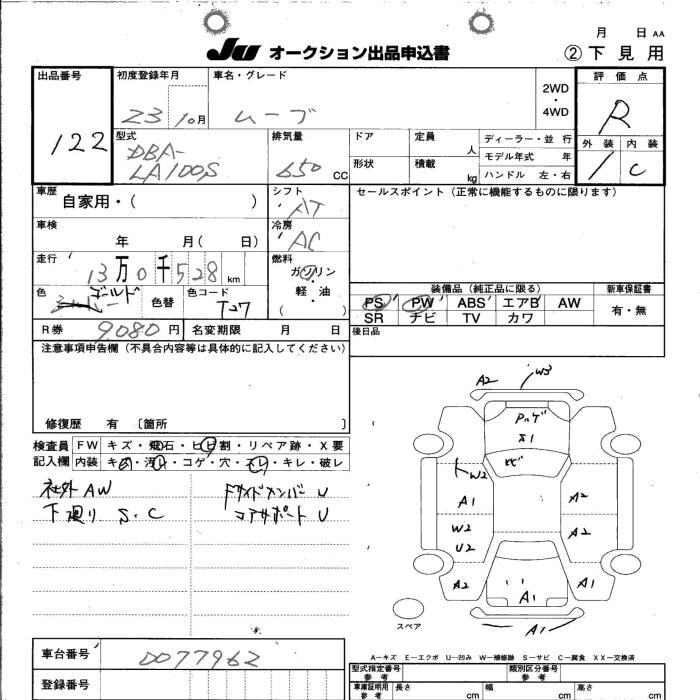 月 日 AA
JU オークション出品申込書 ②下見用
出品番号 122
初度登録年月 23 10月
車名・グレード ムーブ
2WD・4WD
評価点 R
外装 1 内装 C
型式 DBA-LA100S
排気量 650 CC
ドア
定員 人
形状
積載 kg
ディーラー・並 行
モデル年式 年
ハンドル 左・右
車歴 自家用・( )
シフト AT
セールスポイント(正常に機能するものに限ります)
車検 年 月( 日)
冷房 AC
走行 13万0千528km
燃料 ガソリン・軽・油 ( )
色 ゴールド
色替
色コード T27
装備品(純正品に限る) 新車保証書
PS PW ABS エアB AW 有・無
SR ナビ TV カワ
R券 9.080円 名変期限 月 日
後日品
注意事項申告欄(不具合内容等は具体的に記入してください)
修復歴 有 〔箇所 〕
検査員記入欄
FW キズ・飛石・ヒビ割・リペア跡・X要
内装 キズ・汚レ・コゲ・穴・スレ・キレ・破レ
社外AW
下廻り S.C
コアサポート U
A2 W3
ヒビ
W2
A1 A2
W2 A2
U2
A2 A1 A1
A1
スペア
A—キズ E—エクボ U—凹み W—補修跡 S—サビ C—腐食 XX—交換済
車台番号 0077962
登録番号
型式指定番号 参考
類別区分番号 参考
車庫証明用 参考 長さ cm 幅 cm 高さ cm